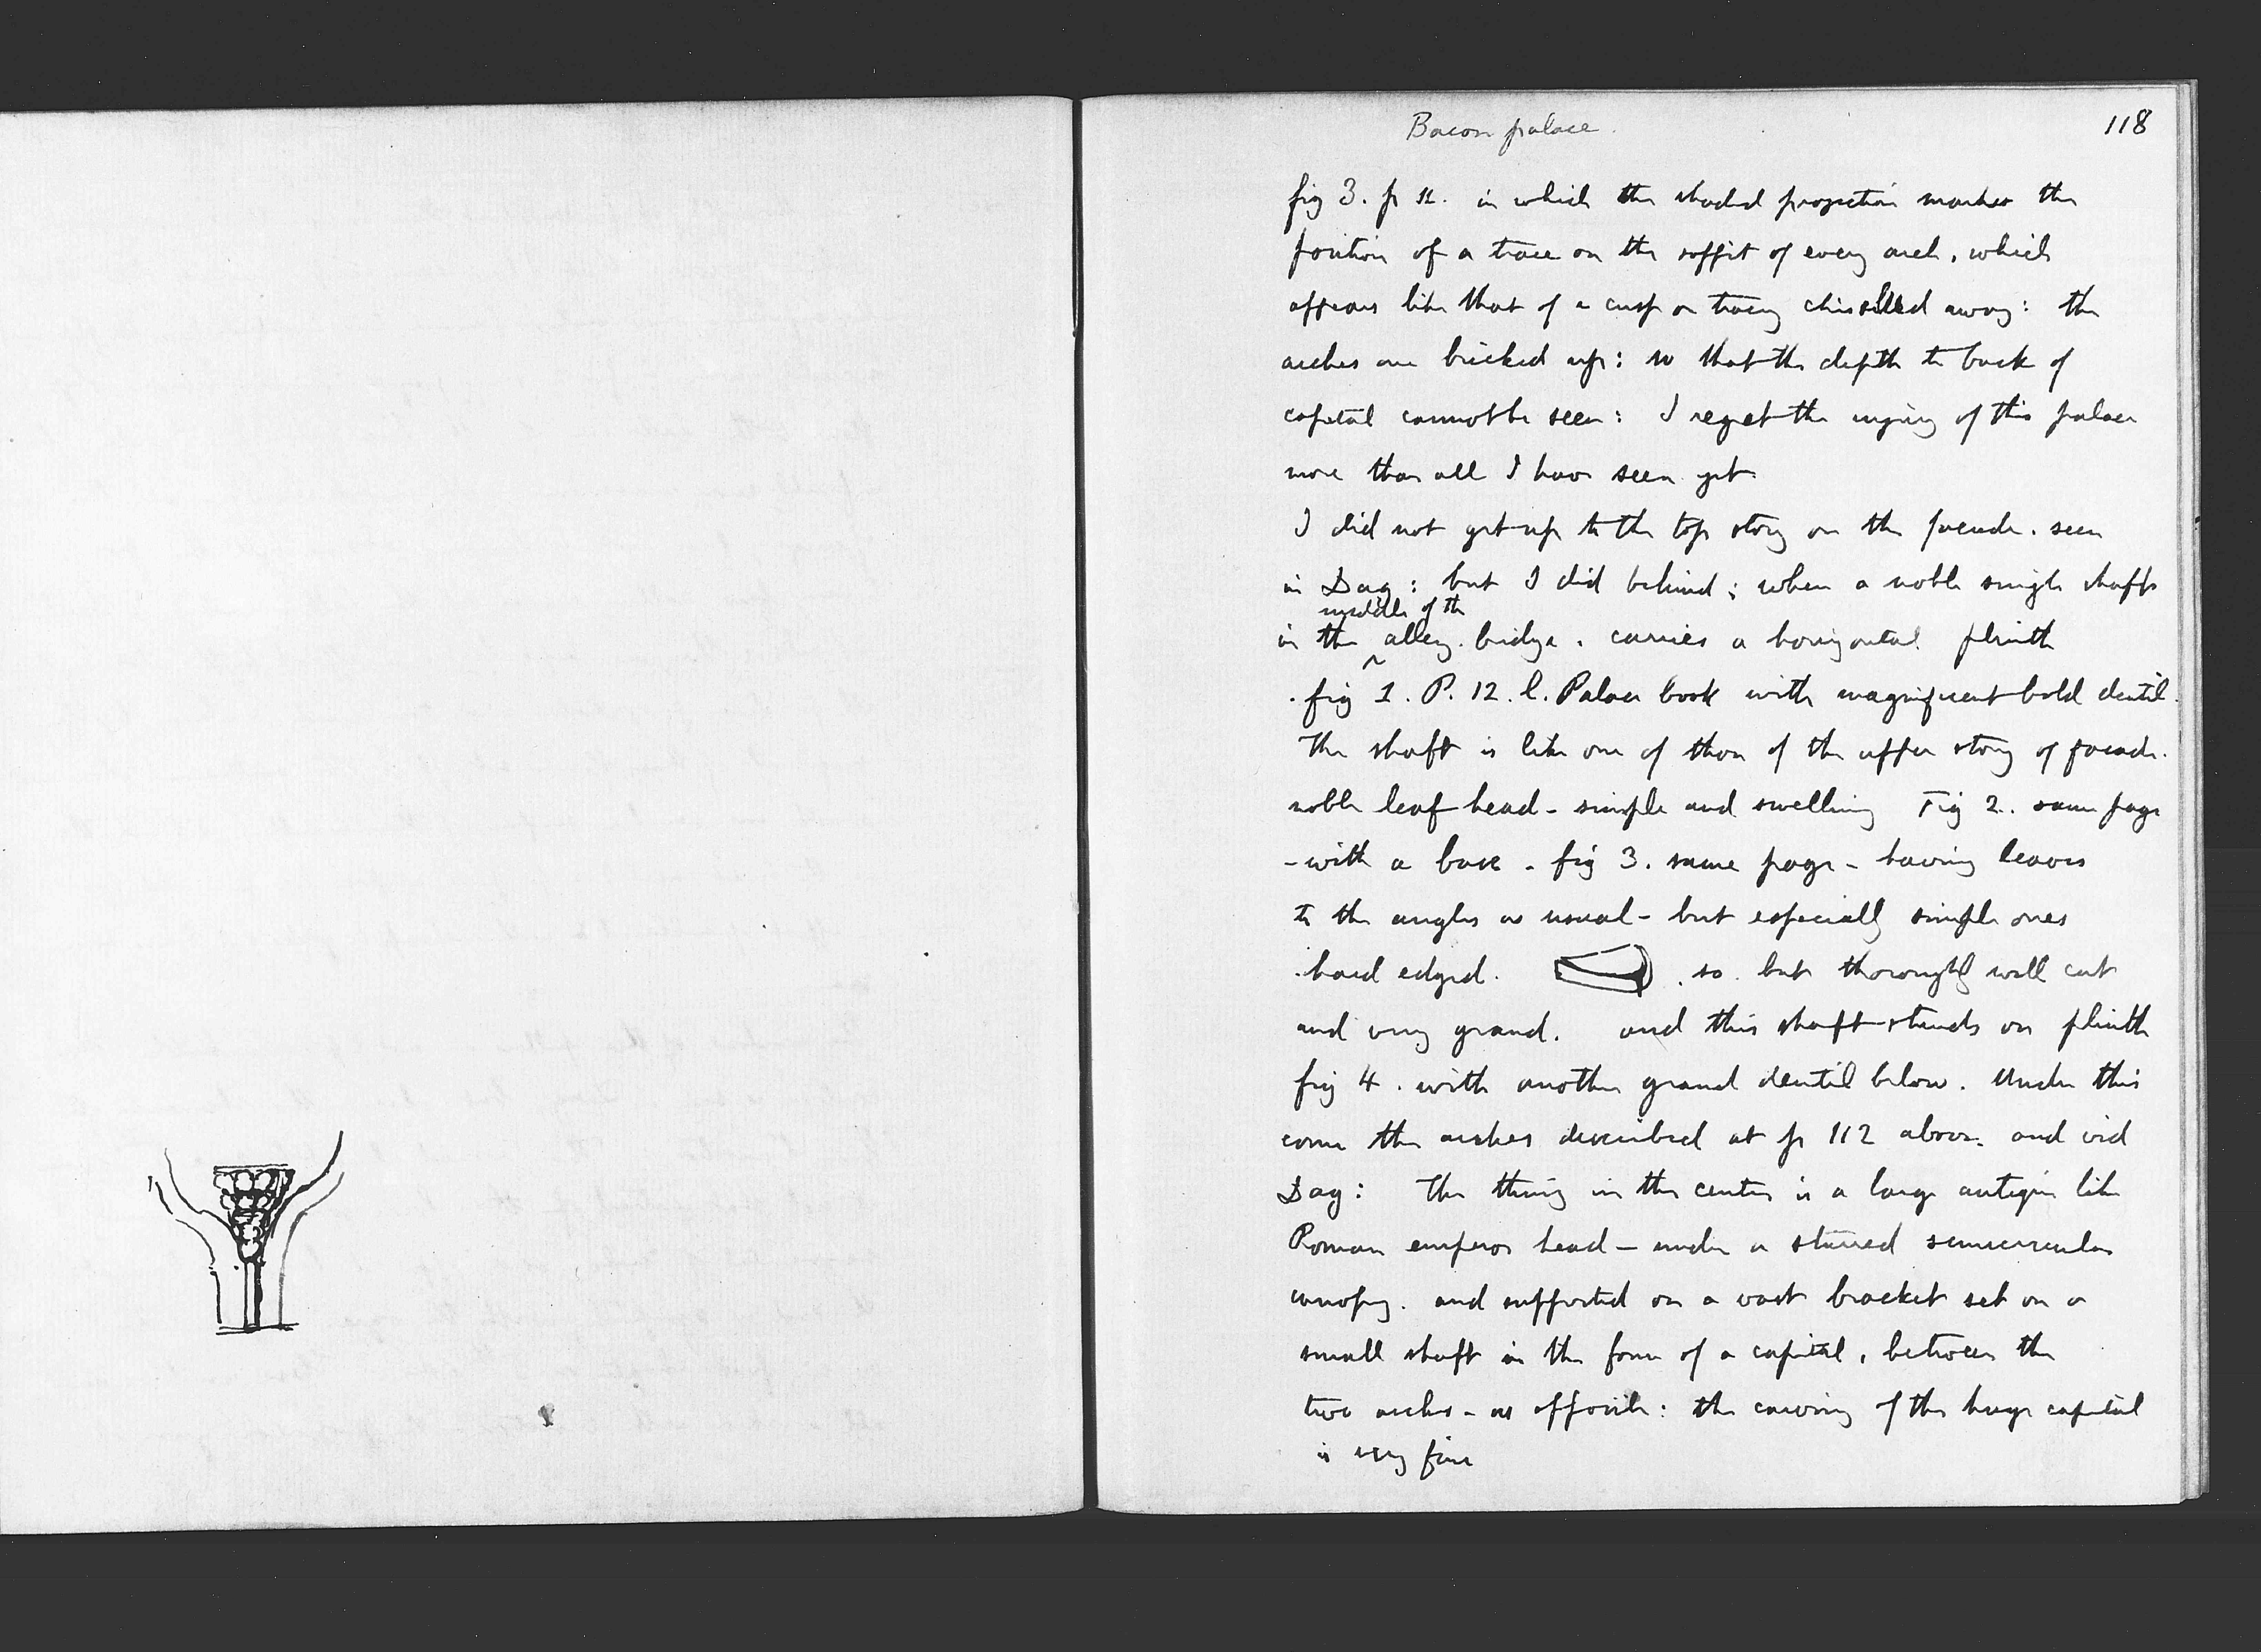 Bacon palace.
118
fig 3. p 11. in which the shaded projection marks the
position of a trace on the soffit of every arch, which
appears like that of a cusp or tracery chiselled away: the
arches are bricked up: so that the depth to back of
capital cannot be seen: I regret the injury of this palace
more than all I have seen yet.
I did not get up to the top story on the facade. seen
in Dag: but I did behind; when a noble single shaft
middle of the
in the alley. bridge. carries a horizontal plinth
. fig 1. P. 12. l. Palace book with magnificent bold dentil.
The shaft is like one of those of the upper story of facade.
noble leaf head - simple and swelling Fig 2. same page
- with a base - fig 3. same page - having leaves
to the angles as usual - but especially simple ones
. hard edged. . so. but thoroughly well cut
and very grand. and this shaft stands on plinth
fig 4. with another grand dentil below. Under this
come the arches described at p 112 above. and vid
Dag: The thing in the center is a large antique like
Roman emperor head - under a starred semicircular
canopy. and supported on a vast bracket set on a
small shaft in the form of a capital, between the
two arches - as opposite: the carving of the huge capital
is very fine